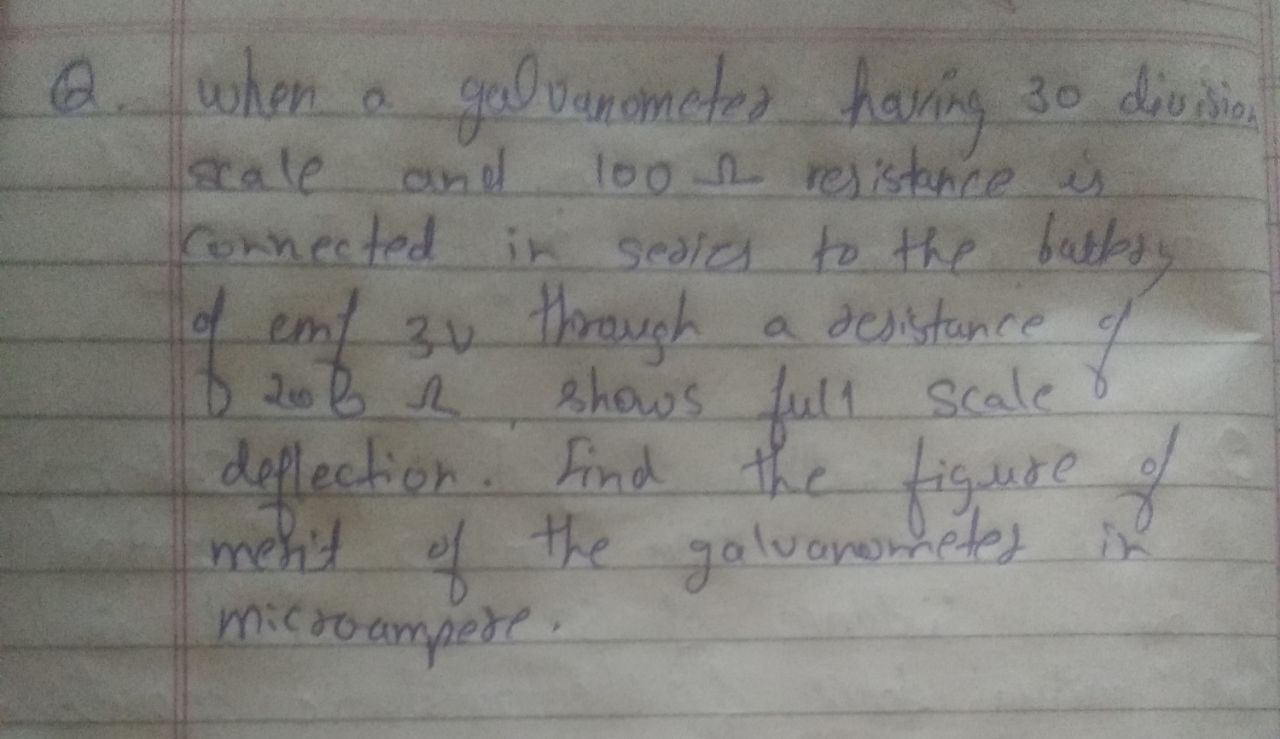 Q. when a galvanometer having 30 division
scale and 100 Ω resistance is
connected in series to the battery
of emf 3V through a resistance of
200 Ω shows full scale
deflection. Find the figure of
merit of the galvanometer in
microampere.